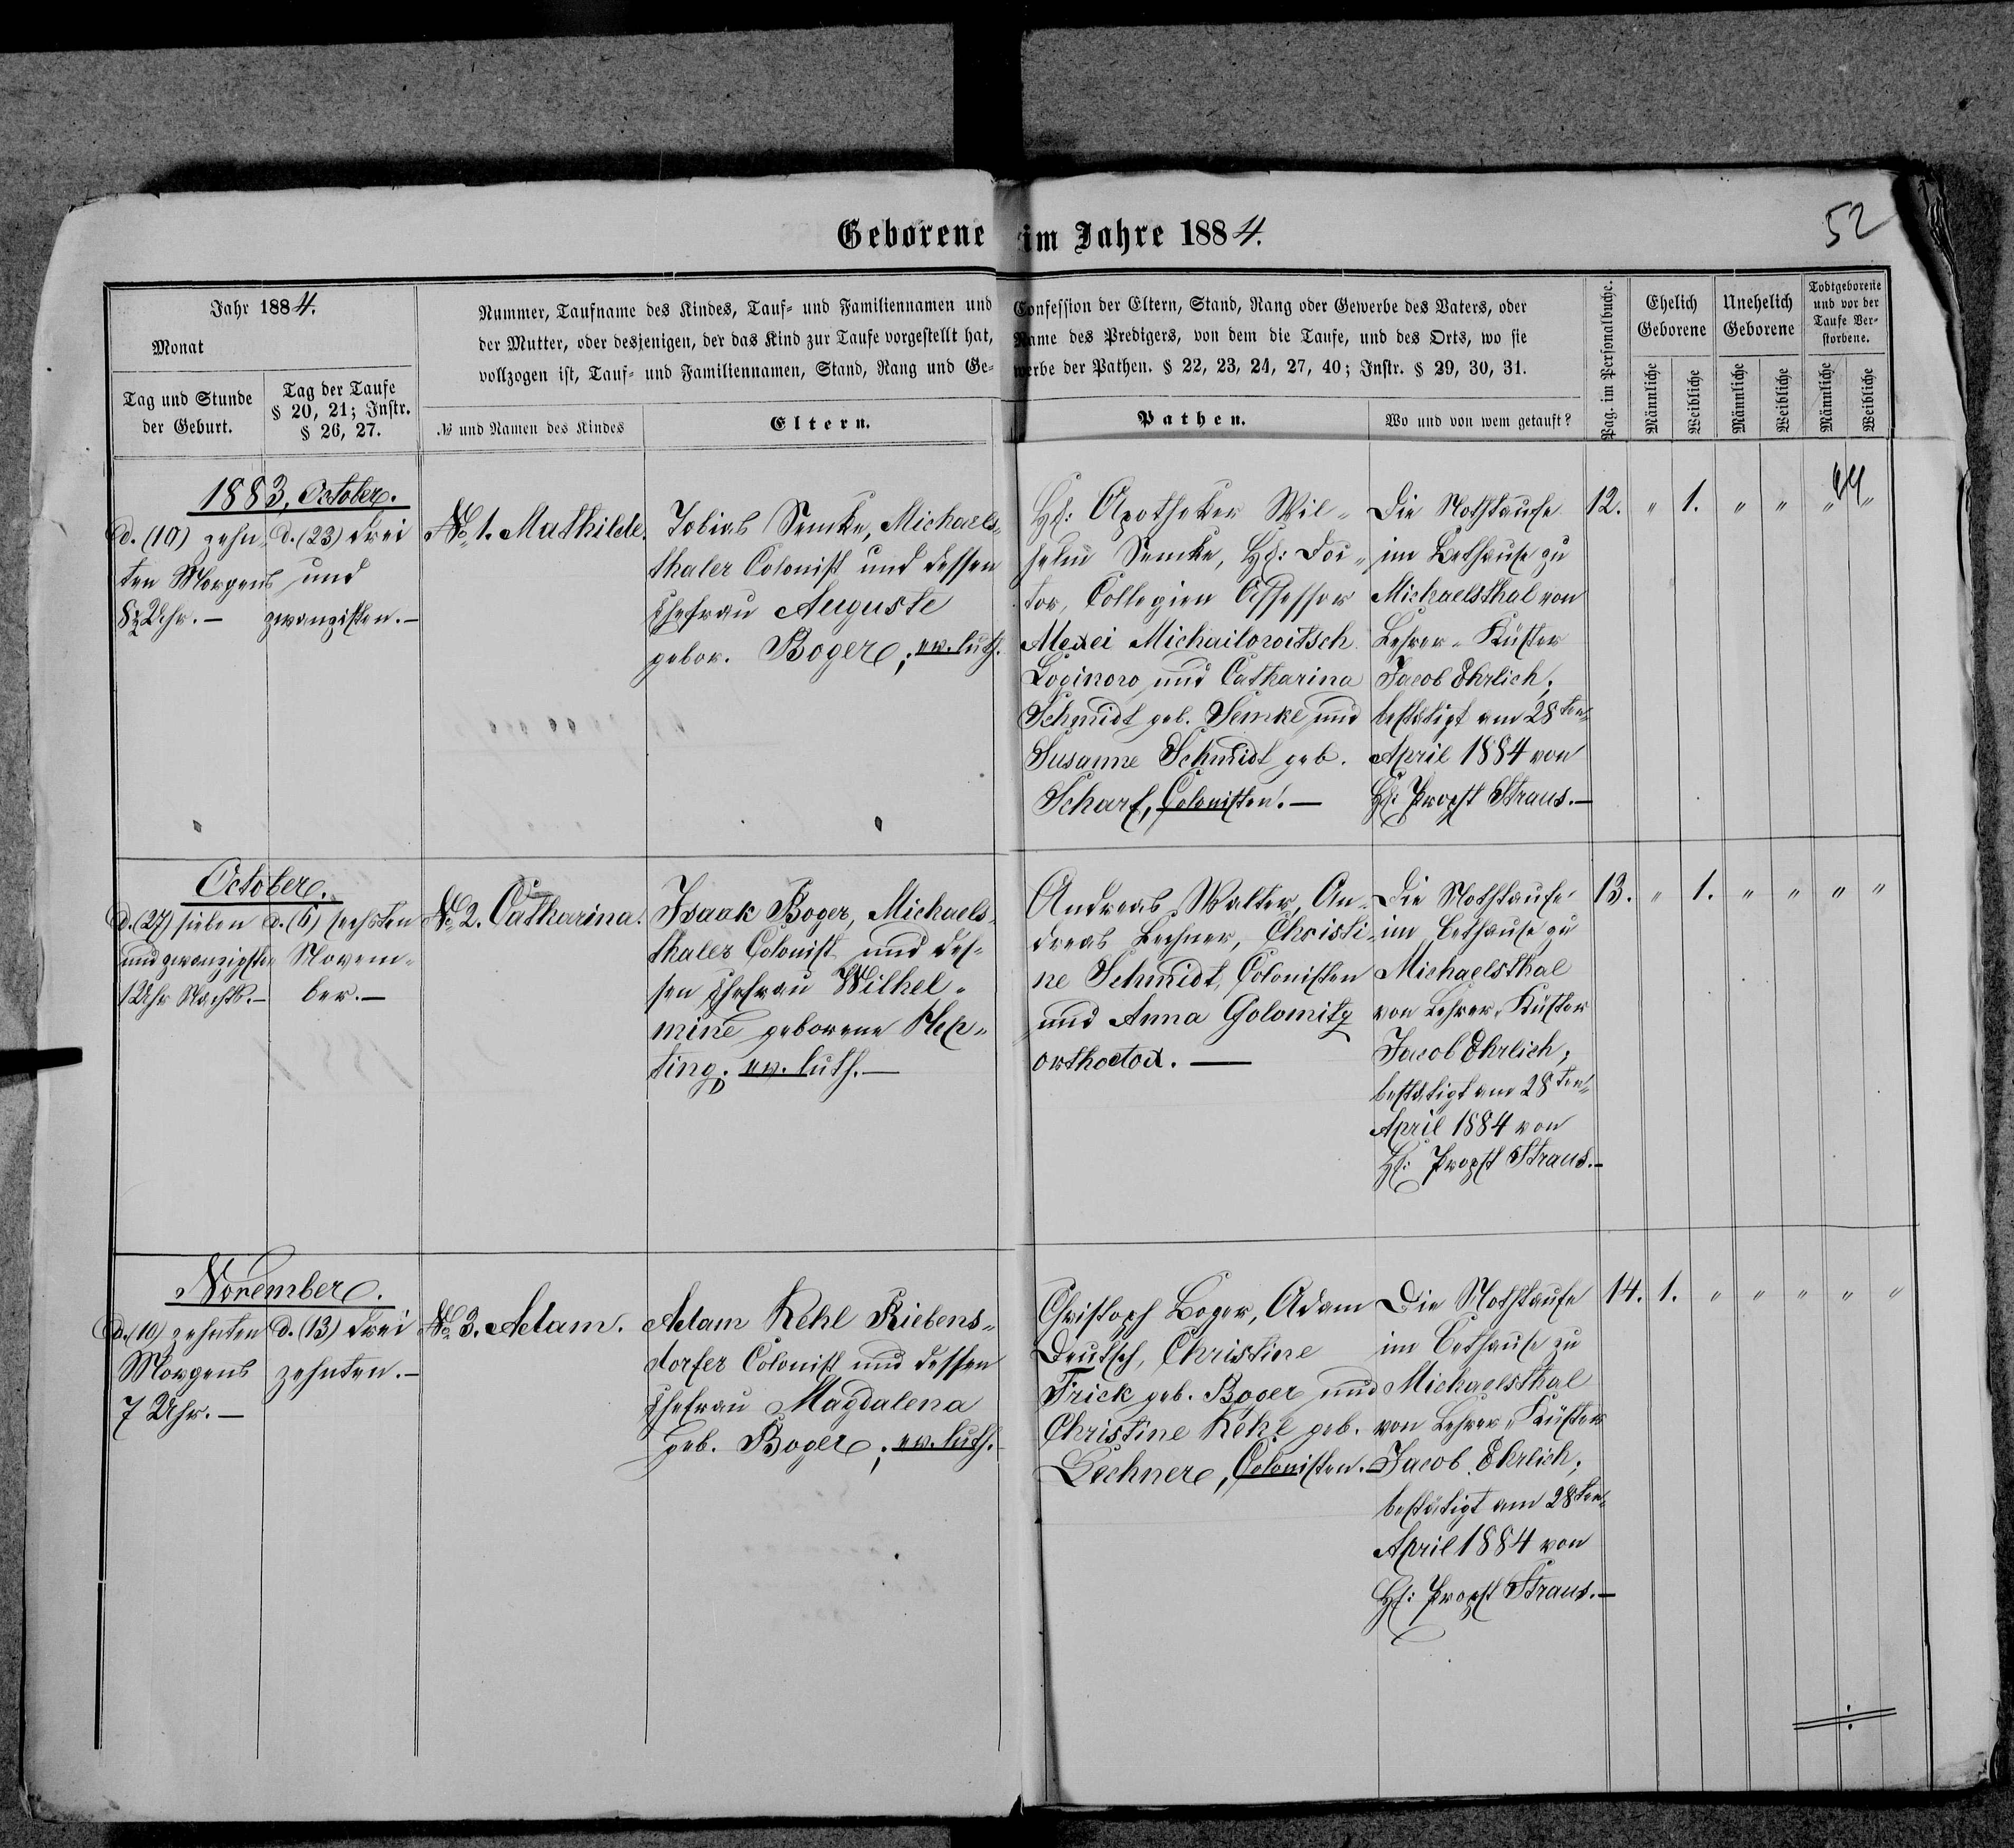 Geborene im Jahre 1884.
52
Jahr 1884.
Monat
Tag und Stunde
der Geburt.
Tag der Taufe
§ 20, 21; Instr.
§ 26, 27.
Nummer, Taufname des Kindes, Tauf- und Familiennamen und Confession der Eltern, Stand, Rang oder Gewerbe des Vaters, oder
der Mutter, oder desjenigen, der das Kind zur Taufe vorgestellt hat, Name des Predigers, von dem die Taufe, und des Orts, wo sie
vollzogen ist, Tauf- und Familiennamen, Stand, Rang und Gewerbe der Pathen. § 22, 23, 24, 27, 40; Instr. § 29, 30, 31.
№ und Namen des Kindes
Eltern.
Pathen.
Wo und von wem getauft?
Pag. im Personalbuche.
Ehelich
Geborene
Unehelich
Geborene
Todtgeborene
und vor der
Taufe Ver-
storbene.
Männliche
Weibliche
Männliche
Weibliche
Männliche
Weibliche
1883, October.
d. (10) zehn-
ten Morgens
8½ Uhr.—
d. (23) drei
und
zwanzigsten.—
№ 1. Mathilde.
Tobias Semke, Michaels-
thaler Colonist und dessen
Ehefrau Auguste
gebor. Boger; ev. luth.
H: Apotheker Wil-
helm Semke, H: Doc-
tor, Collegien Assessor
Alexei Michailowitsch
Loginow und Catharina
Schmidt geb. Semke und
Susanne Schmidt geb.
Scharf, Colonisten.—
Die Nothtaufe
im Bethause zu
Michaelsthal von
Lehrer-Küster
Jacob Ehrlich;
bestätigt am 28ten
April 1884 von
H: Propst Straus.—
12. „ 1. „ „ „ „
October.
d. (27) sieben
und zwanzigsten
1 Uhr Nachts.—
d. (6) sechsten
Novem-
ber.—
№ 2. Catharina.
Isaak Boger, Michaels-
thaler Colonist und des-
sen Ehefrau Wilhel-
mine geborene Hep-
ting; ev. luth.—
Andreas Walter, An-
dreas Lechner, Christi-
ne Schmidt, Colonisten
und Anna Golomitz
orthodox.—
Die Nothtaufe
im Bethause zu
Michaelsthal
von Lehrer-Küster
Jacob Ehrlich;
bestätigt am 28ten
April 1884 von
H: Propst Straus.—
13. „ 1. „ „ „ „
November.
d. (10) zehnten
Morgens
7 Uhr.—
d. (13) drei
zehnten.—
№ 3. Adam.
Adam Kehl Riebens-
dorfer Colonist und dessen
Ehefrau Magdalena
geb. Boger; ev. luth.
Christoph Boger, Adam
Deutsch, Christine
Frick geb. Boger und
Christine Kehl geb.
Lechner, Colonisten.—
Die Nothtaufe
im Bethause zu
Michaelsthal
von Lehrer-Küster
Jacob Ehrlich;
bestätigt am 28ten
April 1884 von
H: Propst Straus.—
14. 1. „ „ „ „ „